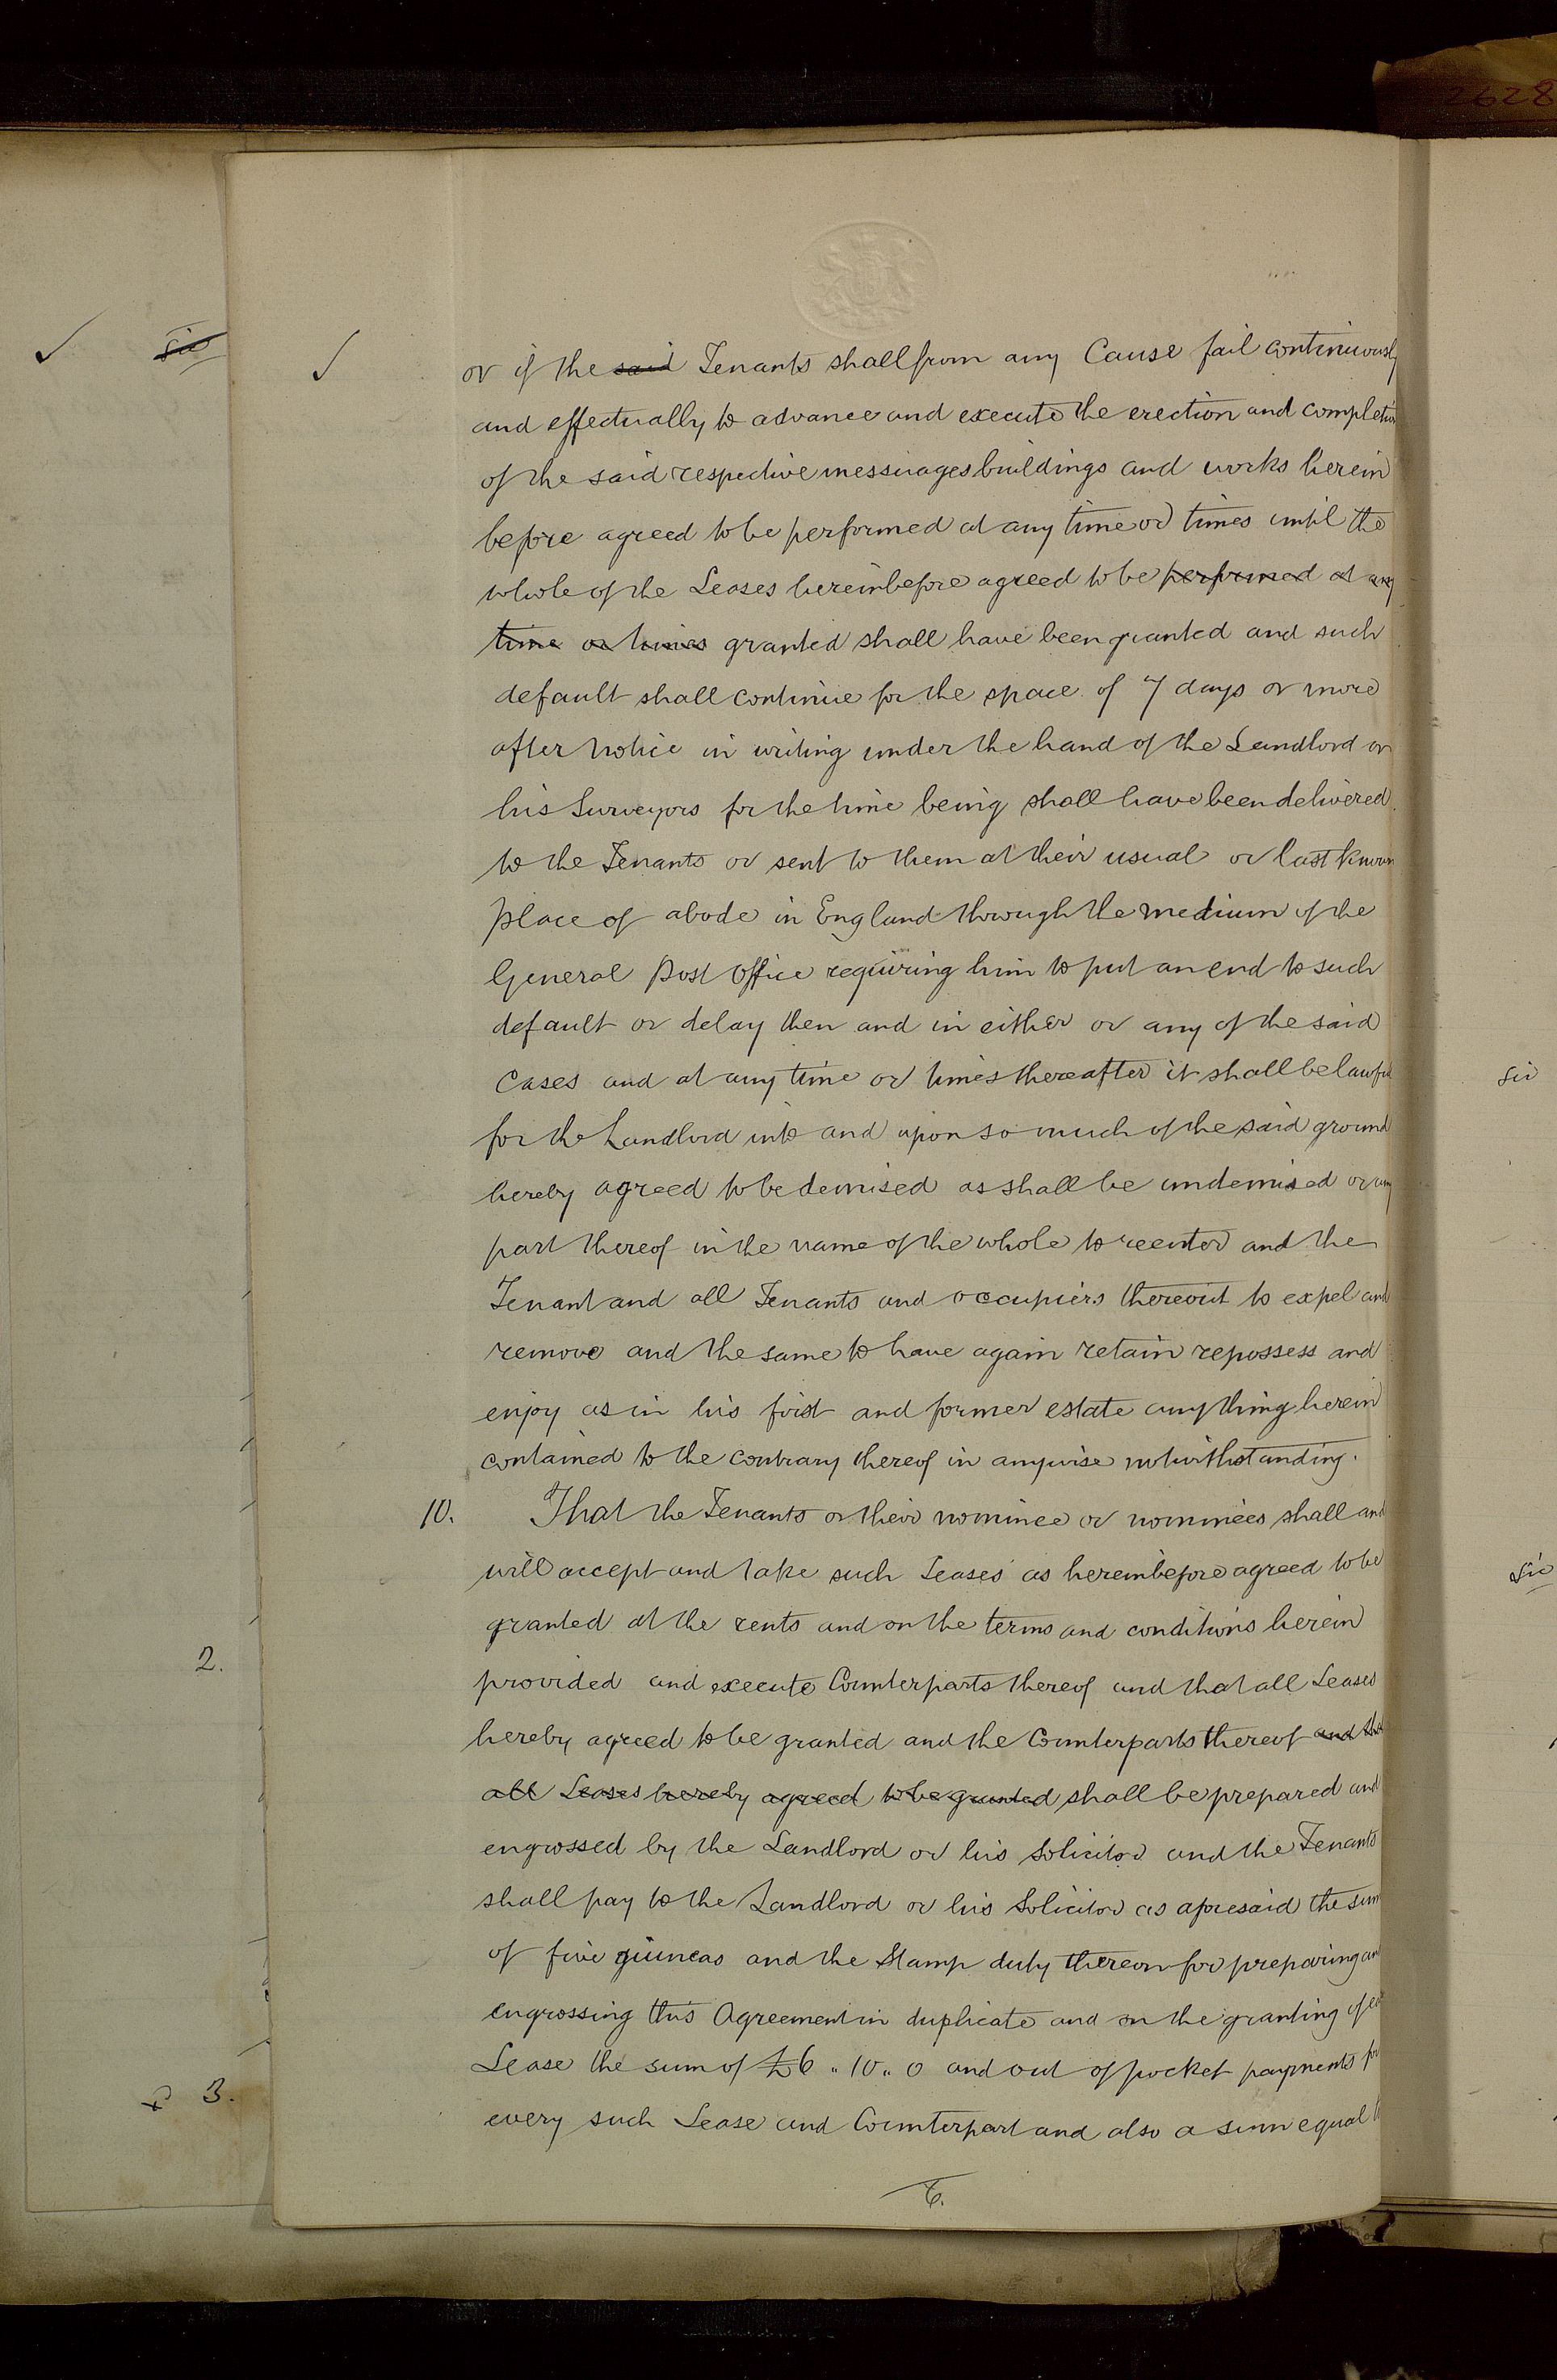 2628
or if the said Tenants shall from any Cause fail continuously
and effectually to advance and execute the erection and completion
of the said respective messuages buildings and works herein
before agreed to be performed at any time or times until the
whole of the Leases hereinbefore agreed to be performed at any
time or times granted shall have been granted and such
default shall continue for the space of 7 days or more
after notice in writing under the hand of the Landlord or
his Surveyors for the time being shall have been delivered
to the Tenants or sent to them at their usual or last known
place of abode in England through the medium of the
General Post Office requiring him to put an end to such
default or delay then and in either or any of the said
Cases and at any time or times thereafter it shall be lawful
for the Landlord into and upon so much of the said ground
hereby agreed to be demised as shall be undemised or any
part thereof in the name of the whole to reenter and the
Tenant and all Tenants and occupiers thereout to expel and
remove and the same to have again retain repossess and
enjoy as in his first and former estate anything herein
contained to the contrary thereof in anywise notwithstanding.
10. That the Tenants or their nominee or nominees shall and
will accept and take such Leases as hereinbefore agreed to be
granted at the rents and on the terms and conditions herein
provided and execute Counterparts thereof and that all Leases
hereby agreed to be granted and the Counterparts thereof and that
all Leases hereby agreed to be granted shall be prepared and
engrossed by the Landlord or his Solicitor and the Tenants
shall pay to the Landlord or his Solicitor as aforesaid the sum
of five guineas and the Stamp duty thereon for preparing and
engrossing this Agreement in duplicate and on the granting of
Lease the sum of £6 " 10 " 0 and out of pocket payments for
every such Lease and Counterpart and also a sum equal
6.
sic
2.
3.
sic
sic